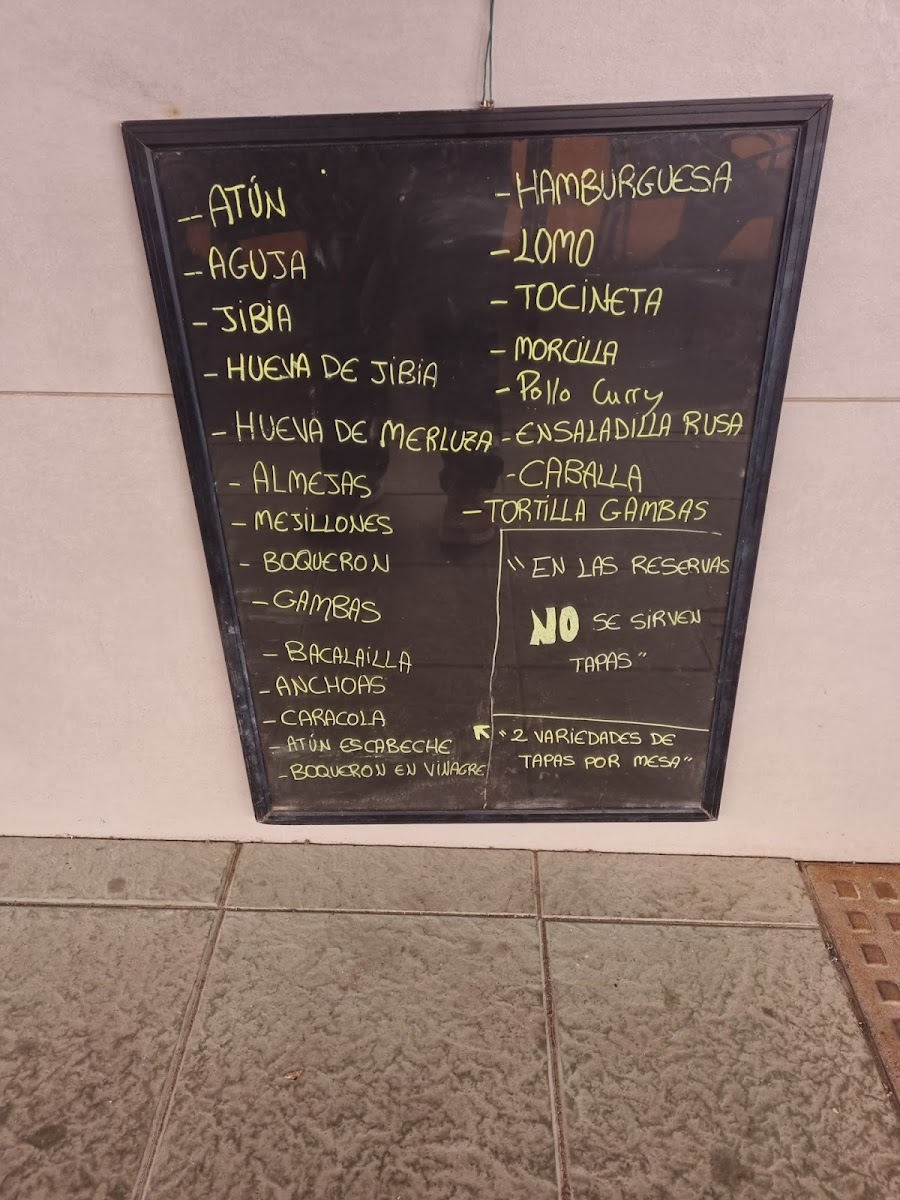 - ATÚN
- AGUJA
- JIBIA
- HUEVA DE JIBIA
- HUEVA DE MERLUZA
- ALMEJAS
- MEJILLONES
- BOQUERON
- GAMBAS
- BACALAILLA
- ANCHOAS
- CARACOLA
- ATÚN ESCABECHE
- BOQUERON EN VINAGRE
- HAMBURGUESA
- LOMO
- TOCINETA
- MORCILLA
- Pollo Curry
- ENSALADILLA RUSA
- CABALLA
- TORTILLA GAMBAS
"EN LAS RESERVAS
NO SE SIRVEN
TAPAS"
"2 VARIEDADES DE
TAPAS POR MESA"